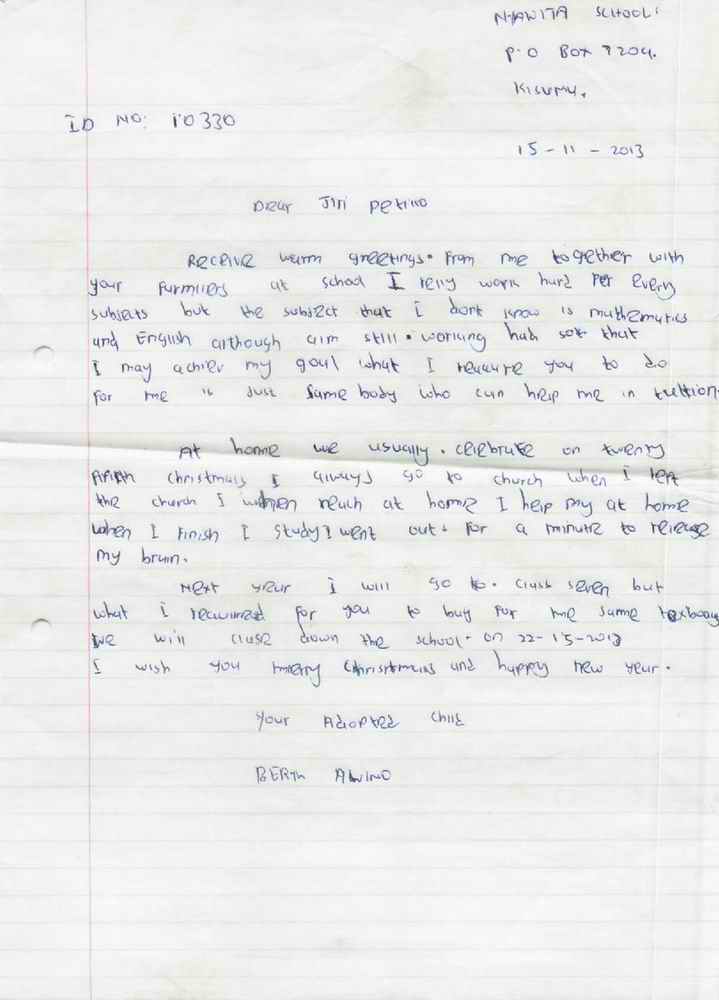 NYAWITA SCHOOL.
P.O BOX 3204.
KISUMU.
ID NO: 10330
15-11-2013
Dear Jiri Petino
Receive warm greetings. From me together with
your furmilers at school I relly work hard per every
subjects but the subject that I dont know is mathematics
and English although aim still. working had sot that
I may achier my goal what I reauure you to do
for me is just same body who can help me in tuttion.
At home we usually. celebrate on twenty
fifth christmass I always go to church when I left
the church I when reach at home I help my at home
when I finish I study I went out. for a minute to release
my brain.
Next year I will go to. class seven but
what I reauired for you to buy for me same texbooy
we will cluse down the school. on 22-15-2013
I wish you merry christmas and happy new year.
Your Adopted child
BERTH AWINO